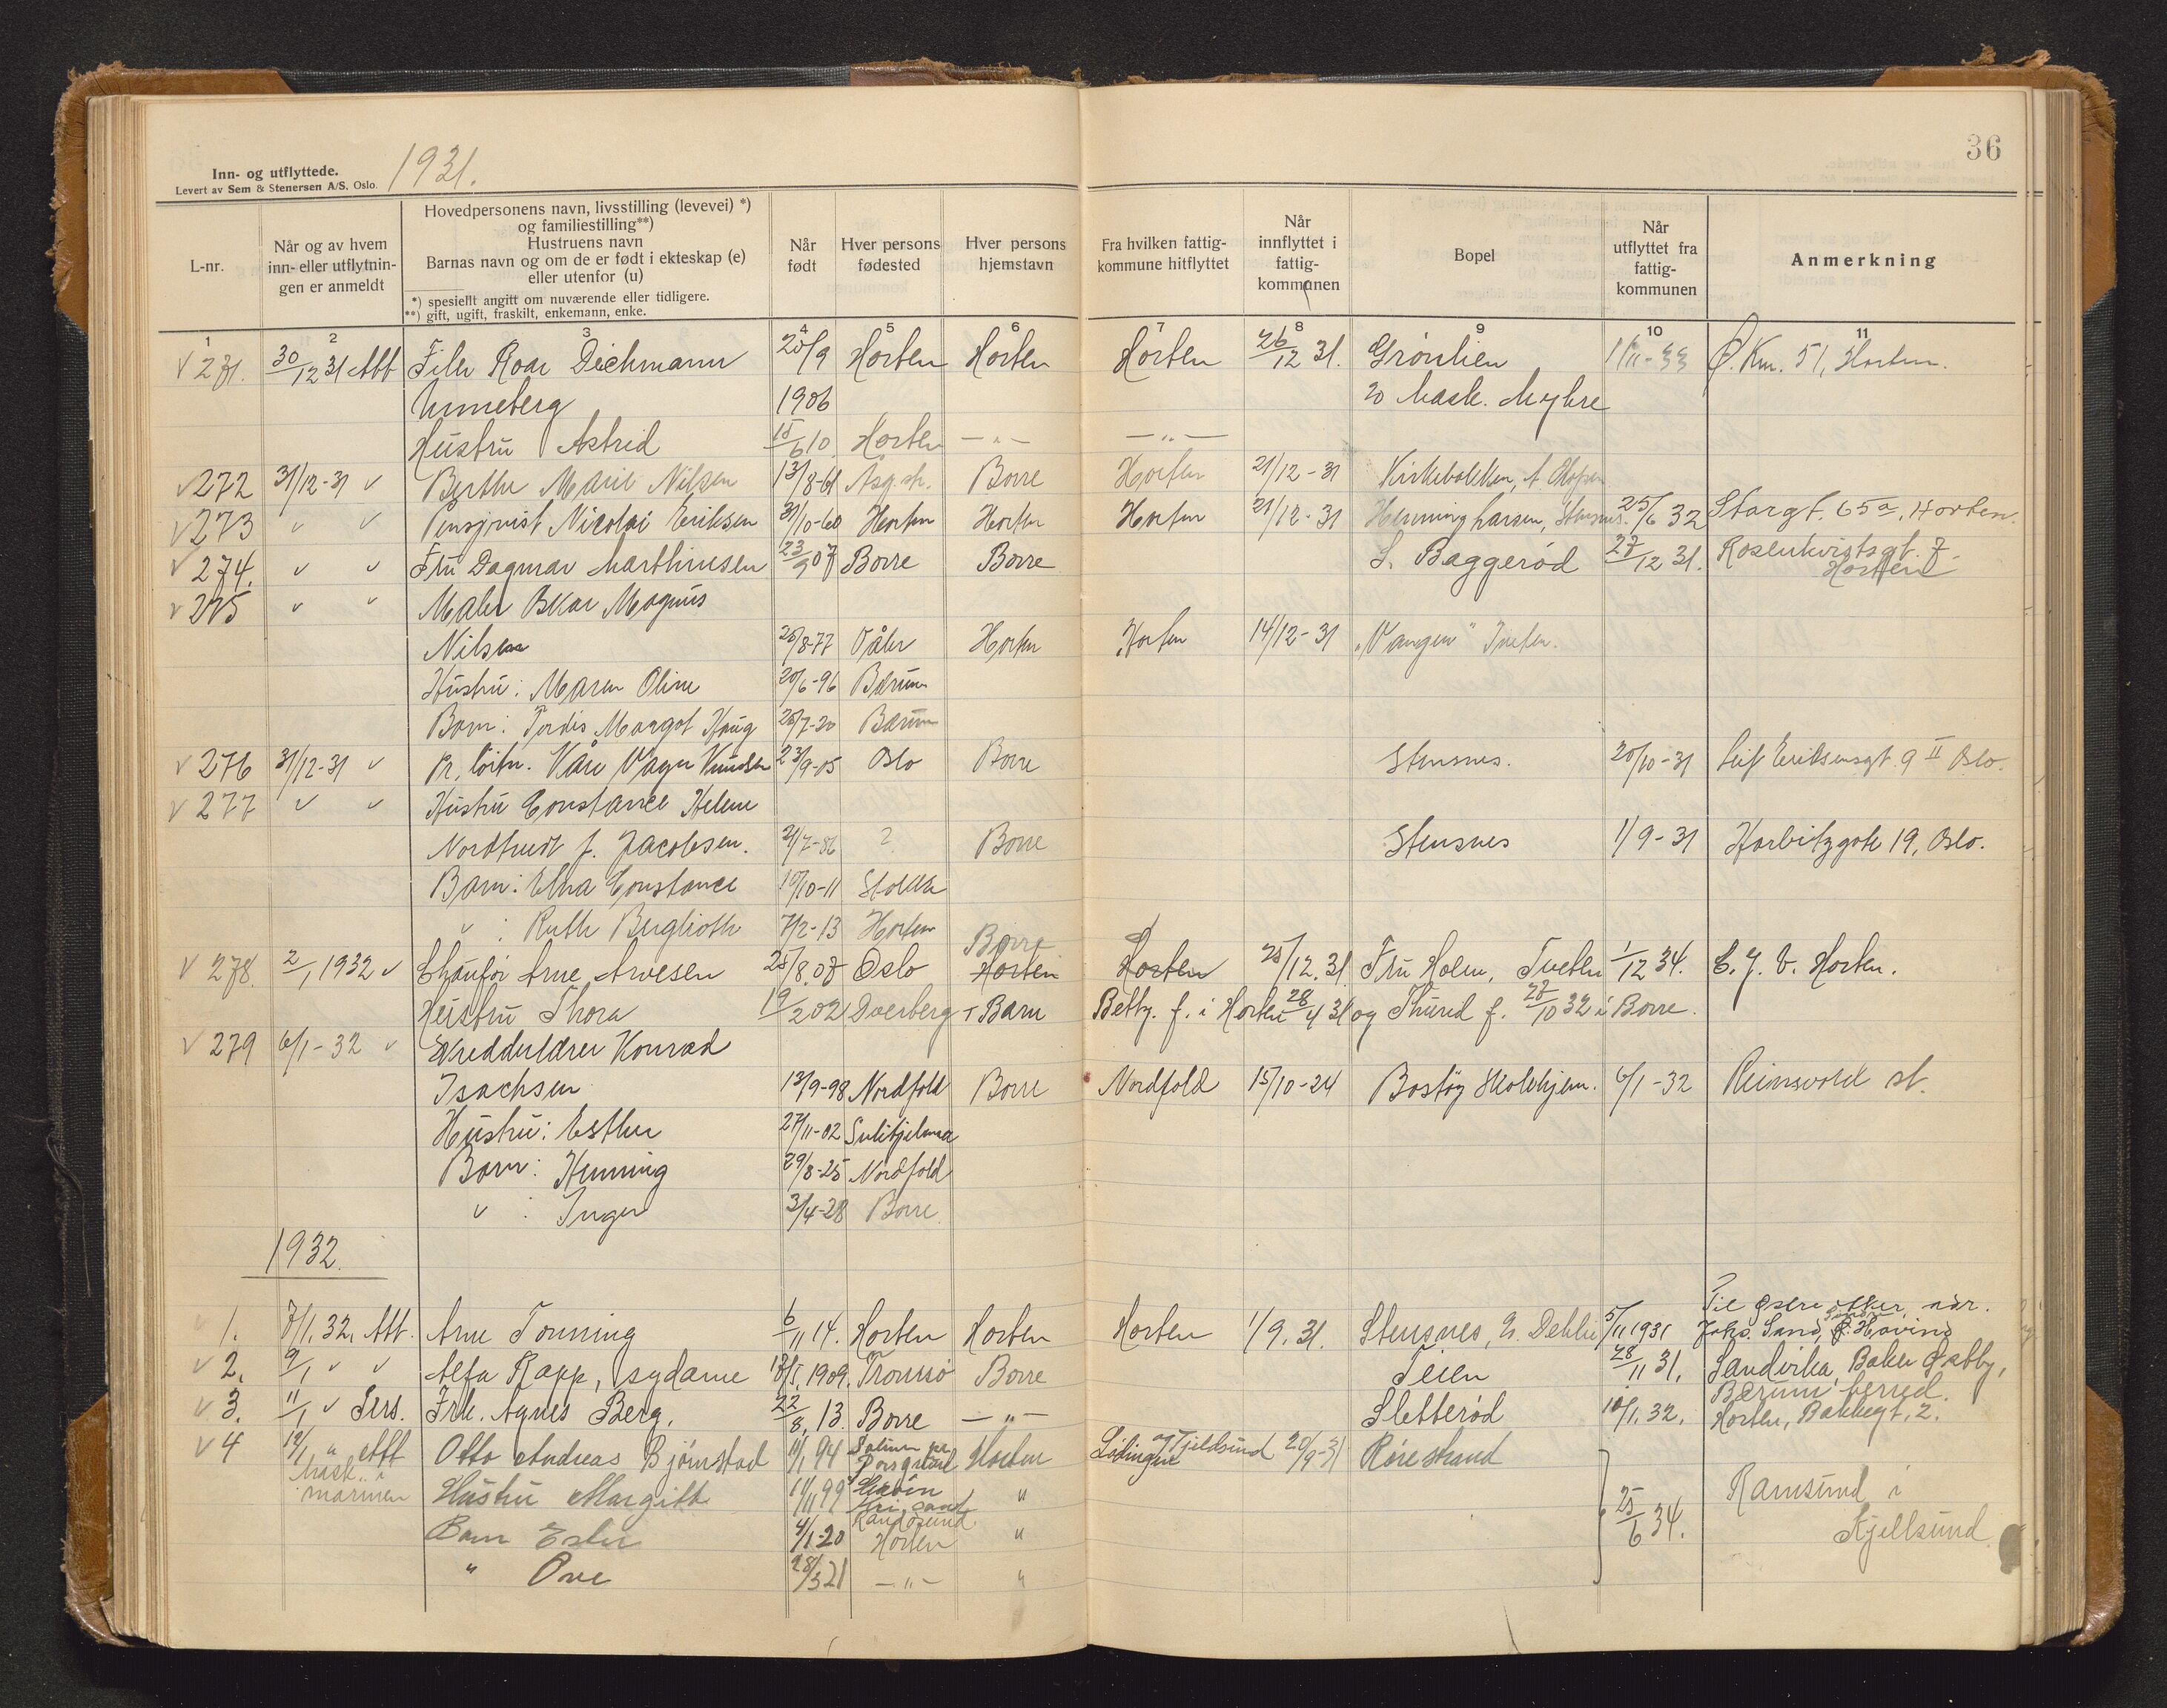 36
Inn- og utflyttede. 1931.
Levert av Sem & Stenersen A/S, Oslo.
L-nr.
Når og av hvem inn- eller utflytnin- gen er anmeldt
Hovedpersonens navn, livsstilling (levevei) *)
og familiestilling**)
Hustruens navn
Barnas navn og om de er født i ekteskap (e)
eller utenfor (u)
*) spesiellt angitt om nuværende eller tidligere.
**) gift, ugift, fraskilt, enkemann, enke.
Når født
Hver persons fødested
Hver persons hjemstavn
Fra hvilken fattig- kommune hitflyttet
Når innflyttet i fattig- kommunen
Bopel
Når utflyttet fra fattig- kommunen
Anmerkning
1 2 3 4 5 6 7 8 9 10 11
√ 271. 30/12 31 Att Filh Roar Dichmann 20/9 Horten Horten Horten 26/12 31. Grønlien 1/11-33 Ø. Km. 51, Horten.
Unneberg 1906 Mask. Myhre
Hustru Astrid 15/6 10. Horten — " — — " —
√ 272 31/12-31 √ Berthe Marie Nilsen 13/8-61 Åsg.str. Borre Horten 21/12-31 Kirkebakken,
√ 273 √ √ Pensjonist Nicolai Eriksen 31/10-60 Horten Horten Horten 21/12-31 Henning Larsen, Stensnes. 25/6 32 Storgt. 65a, Horten.
√ 274. √ √ Fru Dagmar Marthinsen 23/9 07 Borre Borre S. Baggerød 27/12 31. Rosenkvistsgt. 7. Horten
√ 275 √ √ Maler Oskar Magnus
Nilsen 26/8-77 Våler Horten Horten 14/12-31 "Vangen" Tveten.
Hustru: Maren Oline 20/6-96 Bærum
Barn: Tordis Margot Haug 26/7-20 Bærum
√ 276 31/12-31 √ Pr. løitn. Kåre Vagn Knudsen 23/9-05 Oslo Borre Stensnes. 20/10-31 Leif Eriksensgt. 9 II Oslo.
√ 277 √ √ Hustru Constance Helene
Nordtvedt f. Jacobsen. 21/7-86 ? Borre Stensnes 1/9-31 Harbitzgate 19, Oslo.
Barn: Elna Constance 10/10-11 Stokke
√ : Ruth Berglioth 7/2-13 Horten
√ 278. 2/1 1932 √ Chauför Arne Arvesen 25/8.07 Oslo Borre Horten Horten 28/12.31 Fru Holm, Tveten 1/12 34. E. J. V. Horten.
Hustru Thora 19/2 02 Dverberg + Barn Betty. f. i Horten 28/4 31 og Thurid f. 28/10 32 i Borre.
√ 279 6/1-32 √ Vreddulærer Konrad
Isachsen 13/9-98 Nordfold Borre Nordfold 15/10-24 Bastøy Skolehjem. 6/1-32 Reinsvold st.
Hustru: Esther 27/11-02 Sulitjelma
Barn: Henning 29/8-25 Nordfold
√ : Inger 3/4-28 Borre.
1932.
1. 7/1.32. Att. Arne Tonning 6/11 14. Horten Horten Horten 1/9.31. Stensnes, Dehli 5/11 1931 Til Østre Aker, adr. Johs. Sand, Høvina
√ 2. 9/1 √ √ Alfa Rapp, sydame 18/5.1909. Tromsø Borre Teien 28/11 31. Sandvika, Baker Østby, Bærum herred.
√ 3. 11/1 √ Pers. Frk. Agnes Berg. 22/8.13. Borre — " — Sletterød 10/1.32. Horten, Bakkegt, 2.
√ 4 12/1 " Att Otto Andreas Bjørnstad 11/1 94 Porsgrund Horten Lødingen og Tjeldsund 20/9-31 Rørestrand
Mask. i marinen Hustru Margith 11/11 99 Randøsund " 25/6 34. Ramsund i
Barn Ester 4/1-20 Horten " Kjellsund
" Ove 28/3 21 — " — "